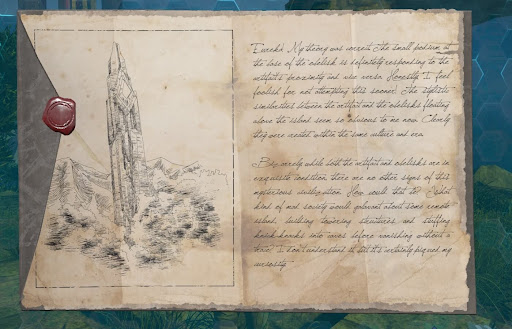 Eureka! My theory was correct. The small podium at
the base of the obelisk is definitely responding to the
artifact's proximity and vice versa. Honestly, I feel
foolish for not attempting this sooner. The stylistic
similarities between the artifact and the obelisks floating
above the island seem so obvious to me now. Clearly
they were created within the same culture and era.
Bizarrely, while both the artifact and obelisks are in
exquisite condition, there are no other signs of this
mysterious civilization. How could that be? What
kind of mad society would gallivant about some remote
island, building towering structures and stuffing
knick-knacks into caves before vanishing without a
trace? I don't understand it, but it's certainly piqued my
curiosity.